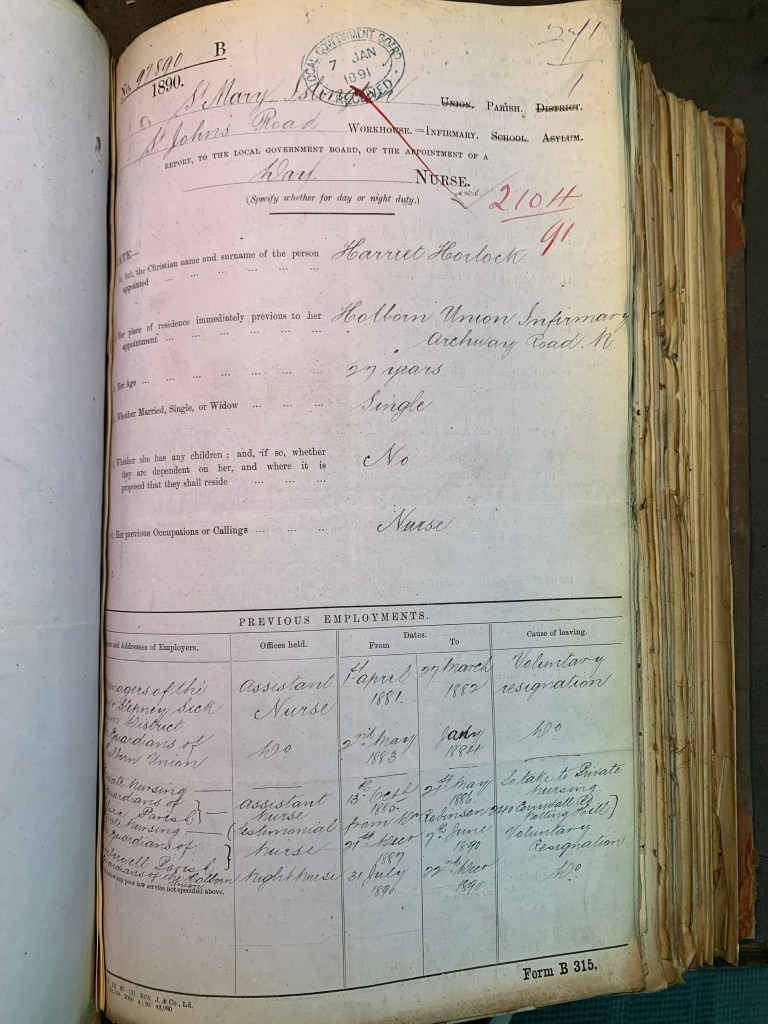 No. 97890 B
1890.
LOCAL GOVERNMENT BOARD
7 JAN
1891
RECEIVED
St Mary Islington UNION. PARISH. DISTRICT.
St John's Road WORKHOUSE.—INFIRMARY. SCHOOL. ASYLUM.
REPORT, TO THE LOCAL GOVERNMENT BOARD, OF THE APPOINTMENT OF A
Day NURSE.
(Specify whether for day or night duty.)
2104
91
the Christian name and surname of the person Harriet Horlock
appointed ... ... ... ... ...
Her place of residence immediately previous to her Holborn Union Infirmary
appointment ... ... ... ... ... Archway Road. N
Her Age ... ... ... ... ... ... 27 years
Whether Married, Single, or Widow ... ... ... Single
Whether she has any children; and, if so, whether
they are dependent on her, and where it is No
proposed that they shall reside ... ...
Her previous Occupations or Callings ... ... ... Nurse
PREVIOUS EMPLOYMENTS.
and Addresses of Employers. Offices held. Dates. Cause of leaving.
From To
Managers of the Assistant 1st April 27 March Voluntary
Stepney Sick Nurse 1881. 1882 resignation
District
Guardians of Do 2nd May Jany Do
Holborn Union 1883 1884
Private Nursing —
Guardians of Assistant 13th Octr 21st May To take to Private
Parish Nurse 1885. 1886. Nursing
Private Nursing — (testimonial from Mr Robinson 240 Cornwall Rd Notting Hill)
Guardians of Nurse 21st Decr 7th June Voluntary
Camberwell Parish 1887 1890 Resignation
Guardians of the Holborn Union Night Nurse 31 July 22nd Decr Do
1890 1890
any poor law service not specified above.
J. & Co., Ld.
Form B 315.